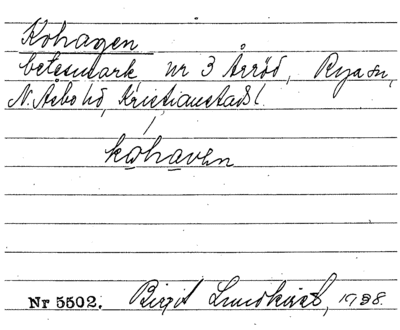 Kohagen
betesmark, nr 3 Årröd, Rya sn,
N. Åsbo hd, Kristianstads l.
kohaven
Nr 5502. Birgit Lundkvist, 1938.